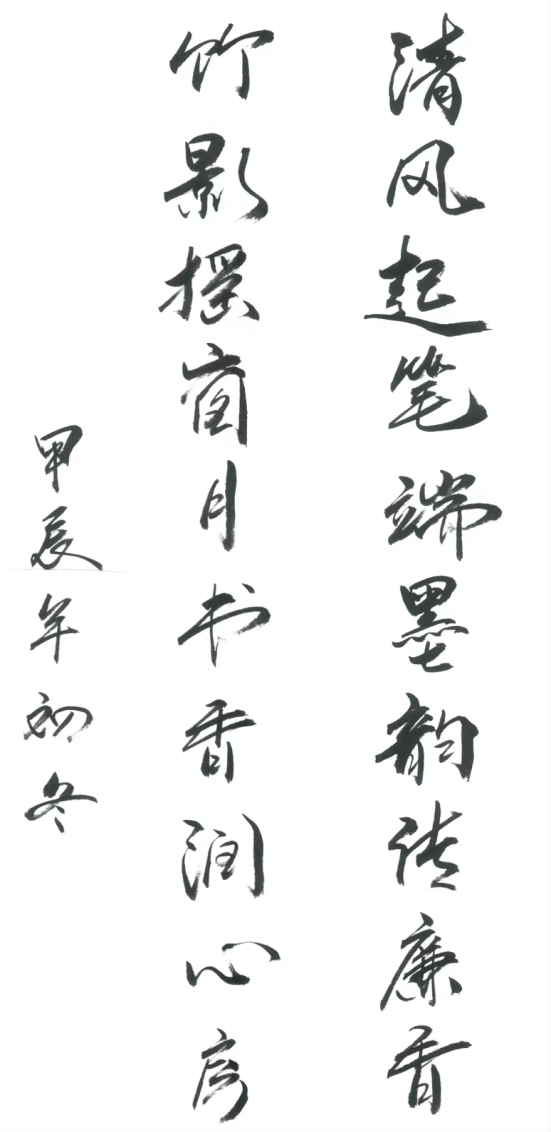 清风起笔端墨韵廉香
竹影摇窗月书香润心房
甲辰年初冬